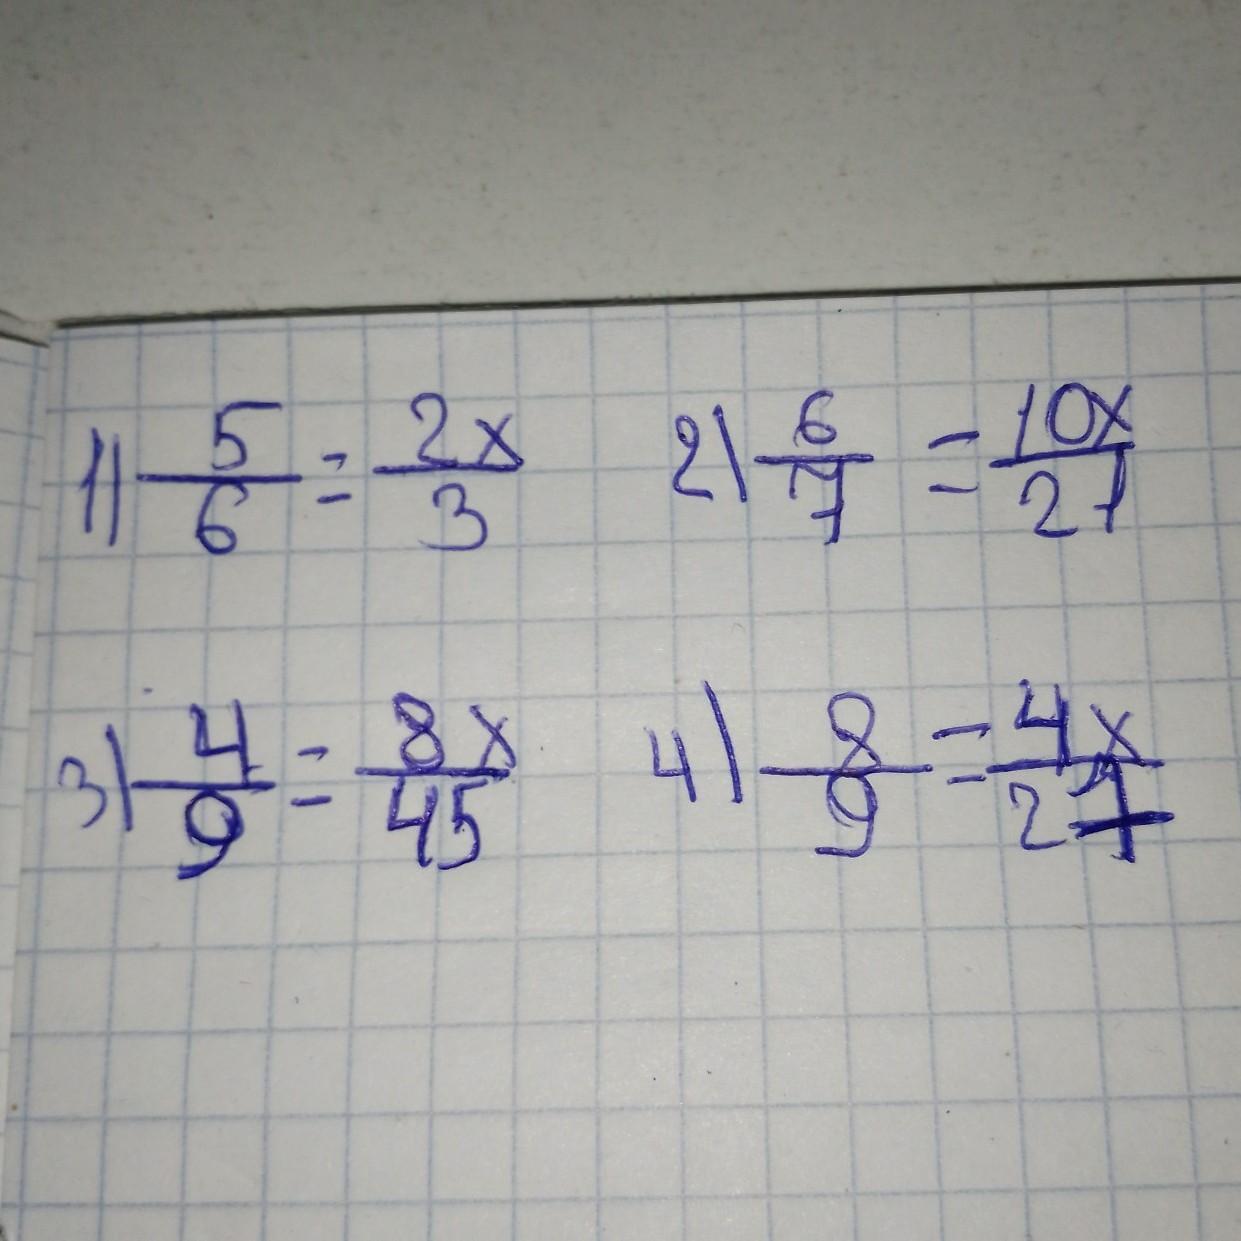 1) 5/6 = 2x/3 2) 6/7 = 10x/21
3) 4/9 = 8x/45 4) 8/9 = 4x/27